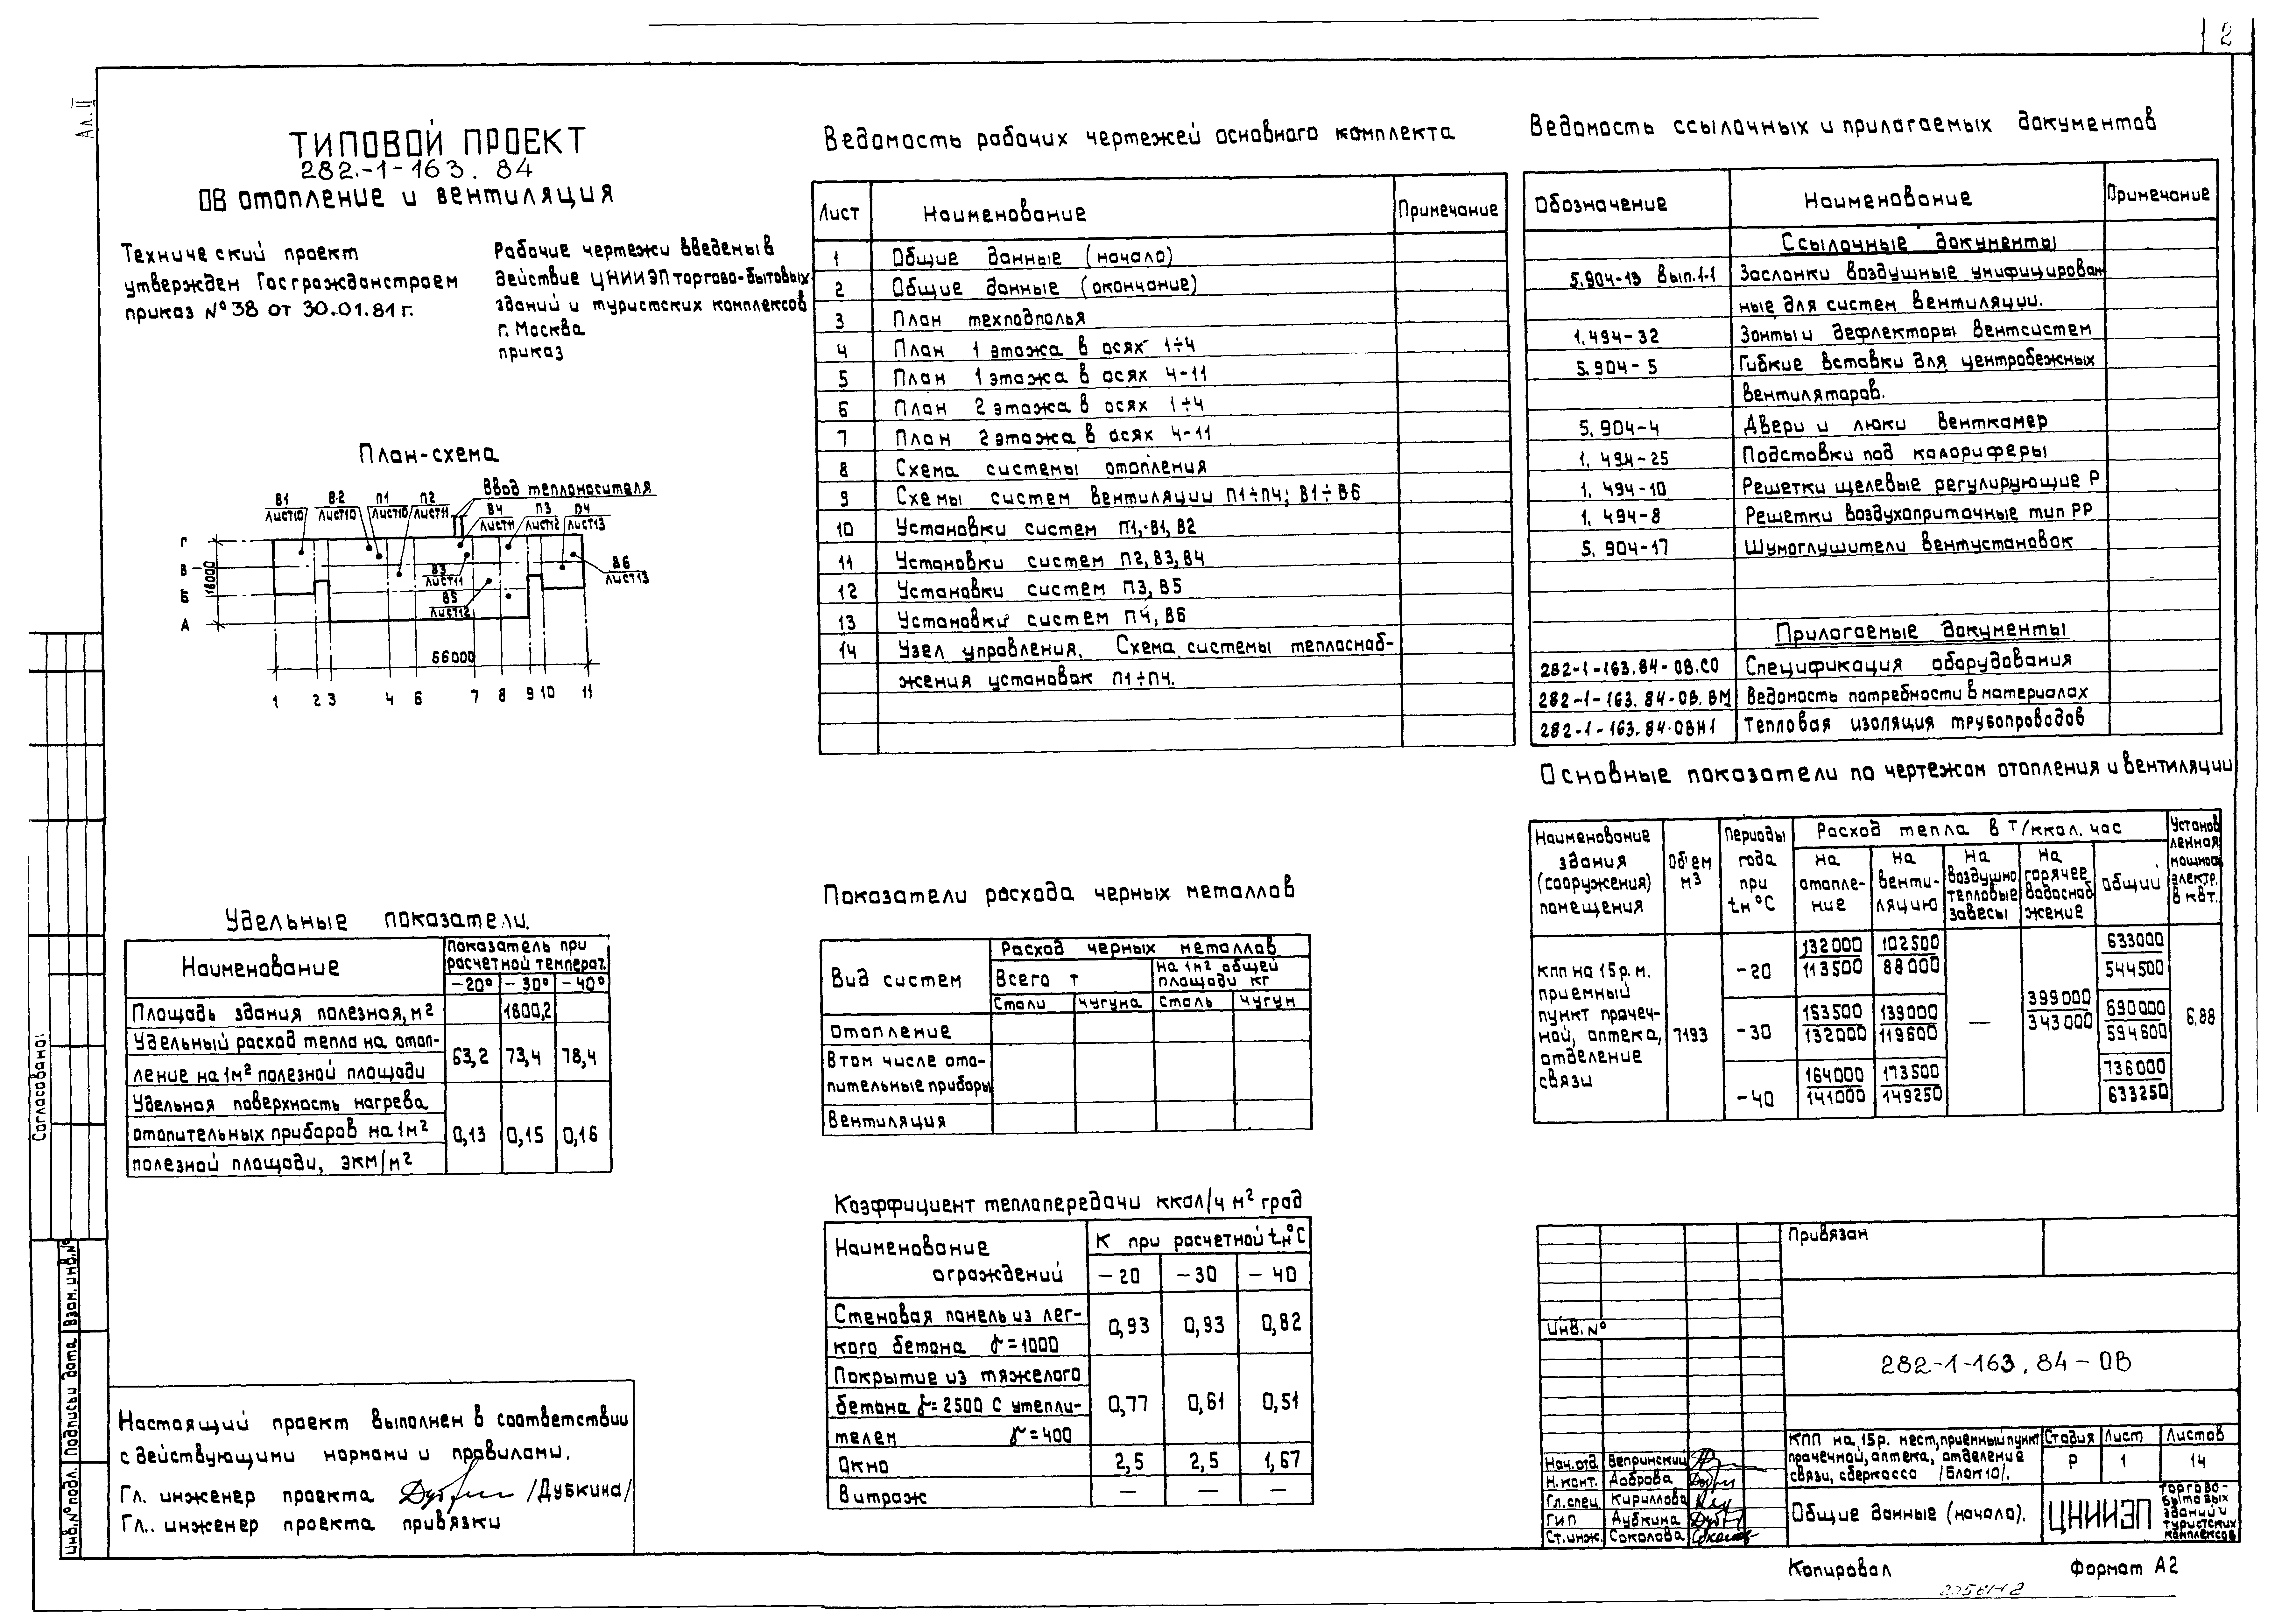 2
Ал. II
ТИПОВОЙ ПРОЕКТ
282.-1-163. 84
ОВ отопление и вентиляция
Технический проект
утвержден Госгражданстроем
приказ №38 от 30.01.81г.
Рабочие чертежи введены в
действие ЦНИИЭП торгово-бытовых
зданий и туристских комплексов
г. Москва
приказ
План-схема
Ввод теплоносителя
В1 Лист10
В2 Лист10
П1 Лист10
П2 Лист11
В4 Лист11
П3 Лист12
П4 Лист13
В3 Лист11
В5 Лист12
В6 Лист13
Г
В
Б
А
18000
66000
1 2 3 4 6 7 8 9 10 11
Удельные показатели.
Наименование
Показатель при
расчетной температ.
-20° -30° -40°
Площадь здания полезная, м2 1800,2
Удельный расход тепла на отоп-
ление на 1м2 полезной площади 63,2 73,4 78,4
Удельная поверхность нагрева
отопительных приборов на 1м2 0,13 0,15 0,16
полезной площади, экм/м2
Настоящий проект выполнен в соответствии
с действующими нормами и правилами.
Гл. инженер проекта /Дубкина/
Гл.. инженер проекта привязки
Согласовано:
Взам. инв.№
Подпись и дата
Инв.№ подл.
Ведомость рабочих чертежей основного комплекта
Лист Наименование Примечание
1 Общие данные (начало)
2 Общие данные (окончание)
3 План техподполья
4 План 1 этажа в осях 1÷4
5 План 1 этажа в осях 4-11
6 План 2 этажа в осях 1÷4
7 План 2 этажа в осях 4-11
8 Схема системы отопления
9 Схемы систем вентиляции П1÷П4; В1÷В6
10 Установки систем П1, В1, В2
11 Установки систем П2, В3, В4
12 Установки систем П3, В5
13 Установки систем П4, В6
14 Узел управления. Схема системы теплоснаб-
жения установок П1÷П4.
Показатели расхода черных металлов
Вид систем
Расход черных металлов
Всего т
на 1м2 общей
площади кг
Стали чугуна Сталь чугун
Отопление
В том числе ото-
пительные приборы
Вентиляция
Коэффициент теплопередачи ккал/ч м2 град
Наименование
ограждений
К при расчетной tн°С
-20 -30 -40
Стеновая панель из лег-
кого бетона γ=1000 0,93 0,93 0,82
Покрытие из тяжелого
бетона γ=2500 с утепли- 0,77 0,61 0,51
телем γ=400
Окно 2,5 2,5 1,67
Витраж — — —
Ведомость ссылочных и прилагаемых документов
Обозначение Наименование Примечание
Ссылочные документы
5.904-13 вып.1-1 Заслонки воздушные унифицирован
ные для систем вентиляции.
1.494-32 Зонты и дефлекторы вентсистем
5.904-5 Гибкие вставки для центробежных
вентиляторов.
5.904-4 Двери и люки венткамер
1. 494-25 Подставки под калориферы
1. 494-10 Решетки щелевые регулирующие Р
1. 494-8 Решетки воздухоприточные тип РР
5. 904-17 Шумоглушители вентустановок
Прилагаемые документы
282-1-163.84-ОВ.СО Спецификация оборудования
282-1-163.84-ОВ.ВМ Ведомость потребности в материалах
282-1-163.84-ОВН1 Тепловая изоляция трубопроводов
Основные показатели по чертежам отопления и вентиляции
Наименование
здания
(сооружения)
помещения
Объем
м3
Периоды
года
при
tн°С
Расход тепла в т/ккал. час
на
отопле-
ние
на
венти-
ляцию
На
воздушно
тепловые
завесы
На
горячее
водоснаб
жение
общий
Установ
ленная
мощнос.
электр.
в квт.
КПП на 15 р. м.
приемный
пункт прачеч-
ной, аптека,
отделение
связи
7193
-20 132000 102500 633000
113500 88000 544500
-30 153500 139000 — 399000 690000 6,88
132000 119600 343000 594600
-40 164000 173500 736000
141000 149250 633250
Привязан
Инв. №
282-1-163.84-ОВ
КПП на 15 р. мест, приемный пункт
прачечной, аптека, отделение
связи, сберкасса /Блок 10/.
Стадия Лист Листов
Р 1 14
Нач.отд. Вепринский
Н.конт. Доброва
Гл.спец. Кириллова
ГИП Дубкина
Ст.инж. Соколова
Общие данные (начало).
ЦНИИЭП
торгово-
бытовых
зданий и
туристских
комплексов
Копировал
Формат А2